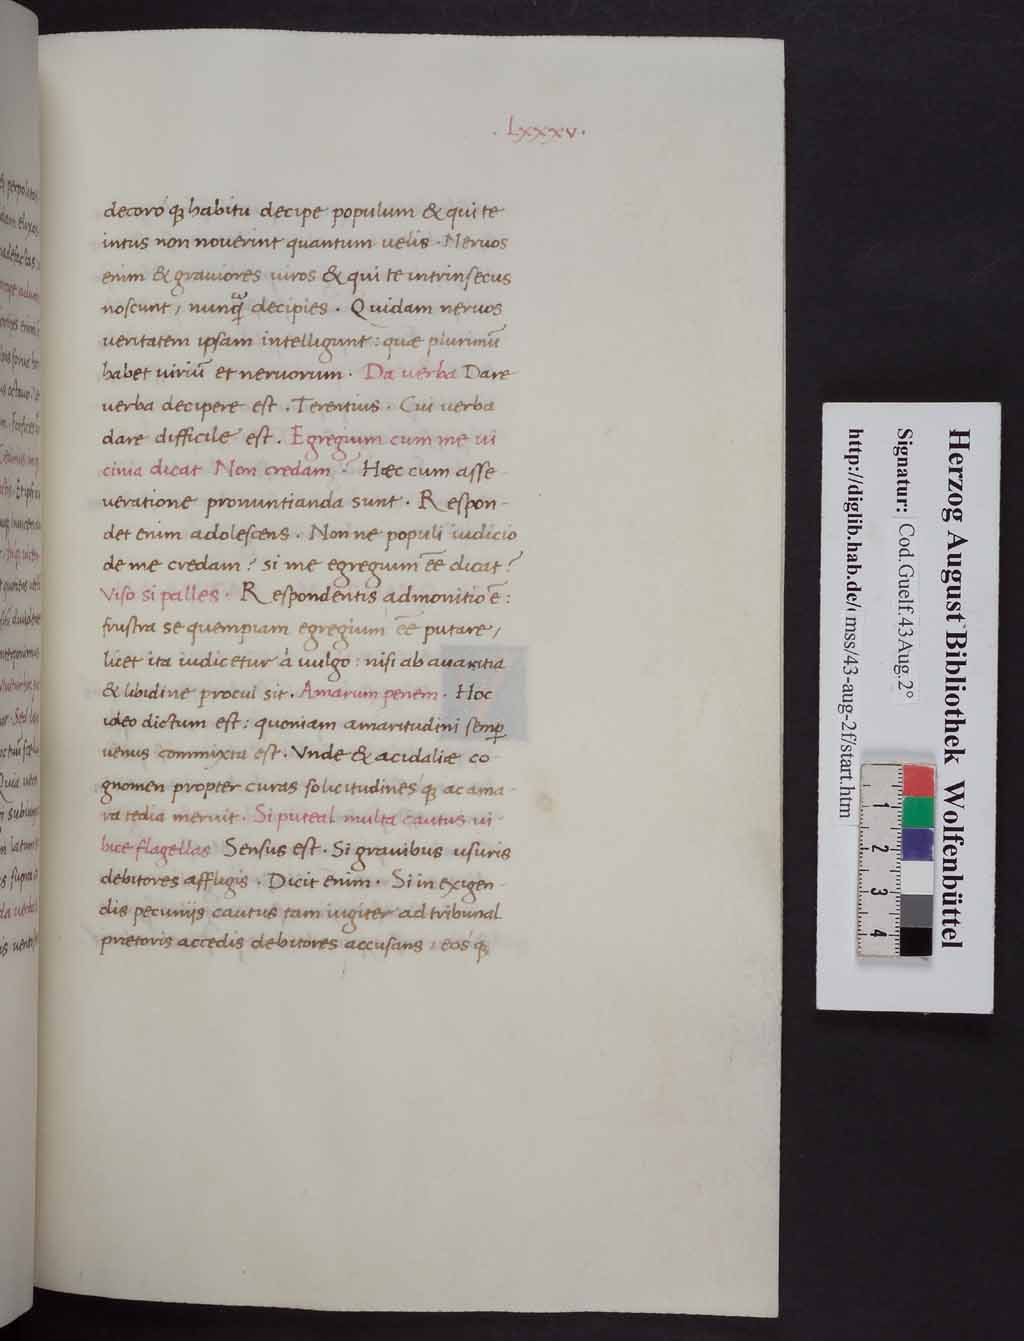 . Lxxxv .
decoro q; habitu decipe populum & qui te
intus non nouerint quantum uelis . Neruos
enim & grauiores uiros & qui te intrinsecus
noscunt, nunq̃ decipies . Quidam neruos
ueritatem ipsam intelligunt : quæ plurimũ
habet uiriũ et neruorum . Da uerba Dare
uerba decipere est . Terentius . Cui uerba
dare difficile est . Egregium cum me ui
cinia dicat Non credam ? Hæc cum asse-
ueratione pronuntianda sunt . Respon-
det enim adolescens . Non ne populi iudicio
de me credam ? si me egregium ẽẽ dicat ?
Viso si palles . Respondentis admonitio ẽ :
frustra se quempiam egregium ẽẽ putare,
licet ita iudicetur à uulgo : nisi ab auaritia
& libidine procul sit . Amarum penem . Hoc
ideo dictum est : quoniam amaritudini semꝑ
uenus commixta est . Vnde & acidaliæ co-
gnomen propter curas solicitudines q; ac ama-
ra tedia meruit . Si puteal multa cautus ui-
bice flagellas Sensus est . Si grauibus usuris
debitores affligis . Dicit enim . Si in exigen-
dis pecunijs cautus tam iugiter ad tribunal
prætoris accedis debitores accusans : eos q;
Herzog August Bibliothek Wolfenbüttel
Signatur: Cod.Guelf.43 Aug.2°
http://diglib.hab.de/mss/43-aug-2f/start.htm
1 2 3 4